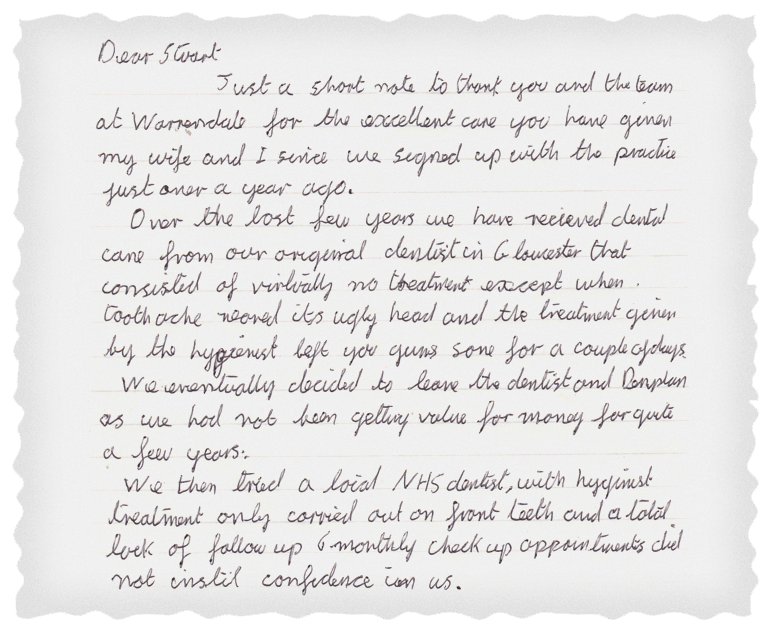 Dear Stuart
Just a short note to thank you and the team
at Warrendale for the excellent care you have given
my wife and I since we signed up with the practice
just over a year ago.
Over the last few years we have recieved dental
care from our original dentist in Gloucester that
consisted of virtually no treatment except when
toothache reared its ugly head and the treatment given
by the hygienist left you gums sore for a couple of days.
We eventually decided to leave the dentist and Denplan
as we had not been getting value for money for quite
a few years.
We then tried a local NHS dentist, with hyginist
treatment only carried out on front teeth and a total
lack of follow up 6 monthly check up appointments did
not instil confidence in us.